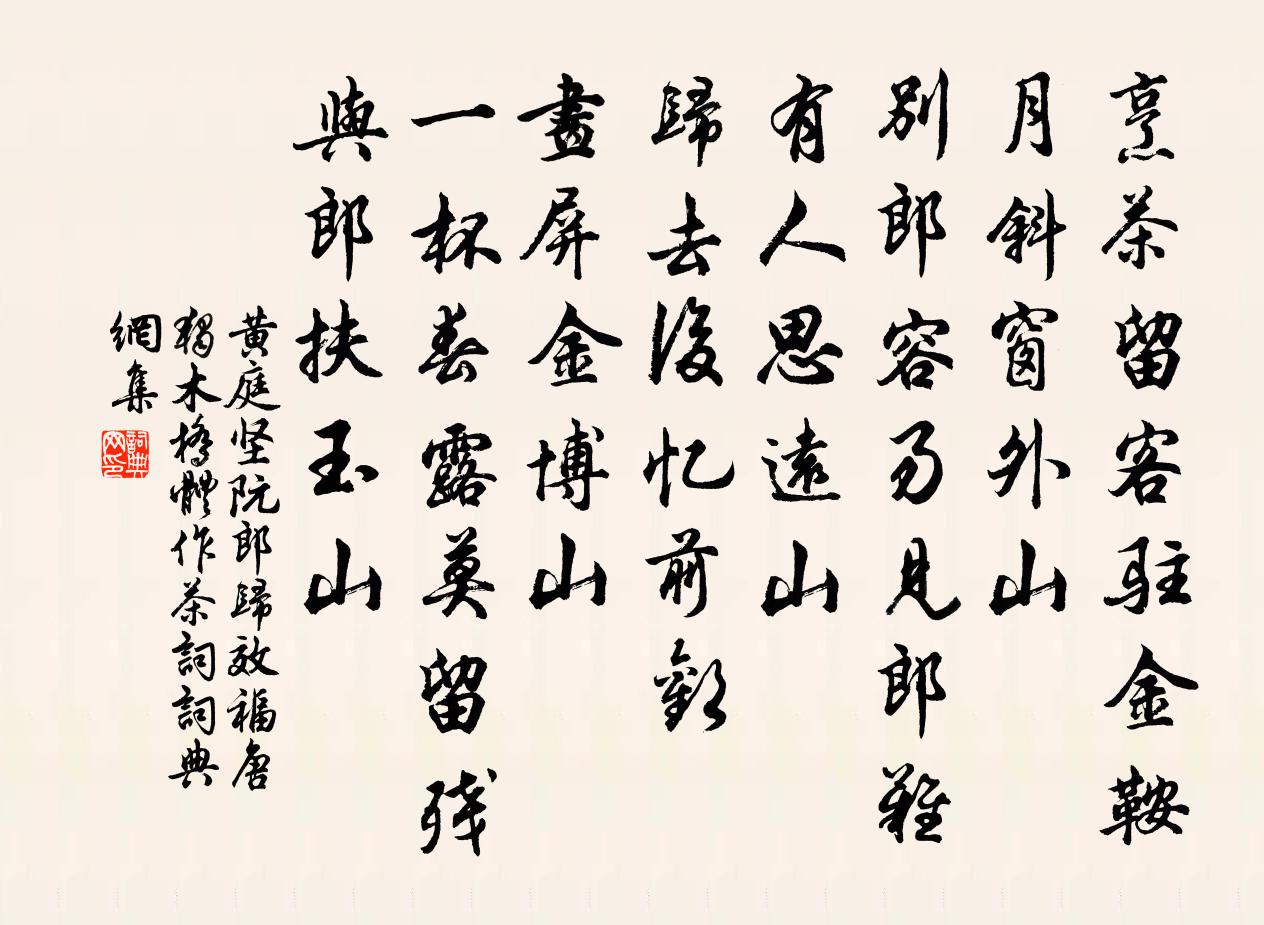 烹茶留客驻金鞍
月斜窗外山
別郎容易見郎難
有人思遠山
歸去後忆前歡
畫屏金博山
一杯春露莫留残
與郎扶玉山
黄庭坚阮郎歸效福唐
獨木橋體作茶詞詞典
網集
詞典网印